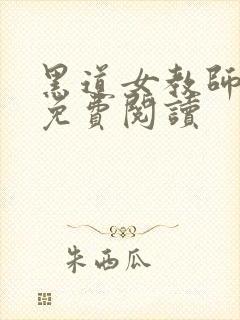 黑道女教師
免費閱讀
朱西瓜